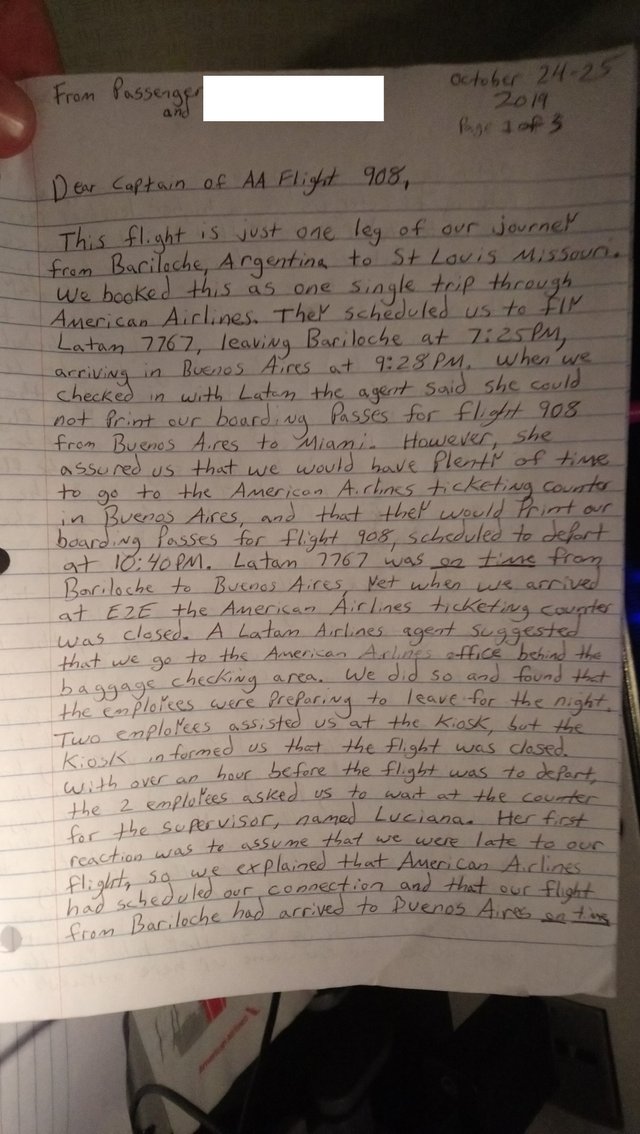 From Passenger
and
October 24-25
2019
Page 1 of 3
Dear Captain of AA Flight 908,
This flight is just one leg of our journey
from Bariloche, Argentina to St Louis Missouri.
We booked this as one single trip through
American Airlines. They scheduled us to fly
Latam 7767, leaving Bariloche at 7:25PM,
arriving in Buenos Aires at 9:28PM. When we
checked in with Latam the agent said she could
not print our boarding passes for flight 908
from Buenos Aires to Miami. However, she
assured us that we would have plenty of time
to go to the American Airlines ticketing counter
in Buenos Aires, and that they would print our
boarding passes for flight 908, scheduled to depart
at 10:40PM. Latam 7767 was on time from
Bariloche to Buenos Aires, Yet when we arrived
at EZE the American Airlines ticketing counter
was closed. A Latam Airlines agent suggested
that we go to the American Airlines office behind the
baggage checking area. We did so and found that
the employees were preparing to leave for the night.
Two employees assisted us at the kiosk, but the
kiosk informed us that the flight was closed.
With over an hour before the flight was to depart,
the 2 employees asked us to wait at the counter
for the supervisor, named Luciana. Her first
reaction was to assume that we were late to our
flight, so we explained that American Airlines
had scheduled our connection and that our flight
from Bariloche had arrived to Buenos Aires on time